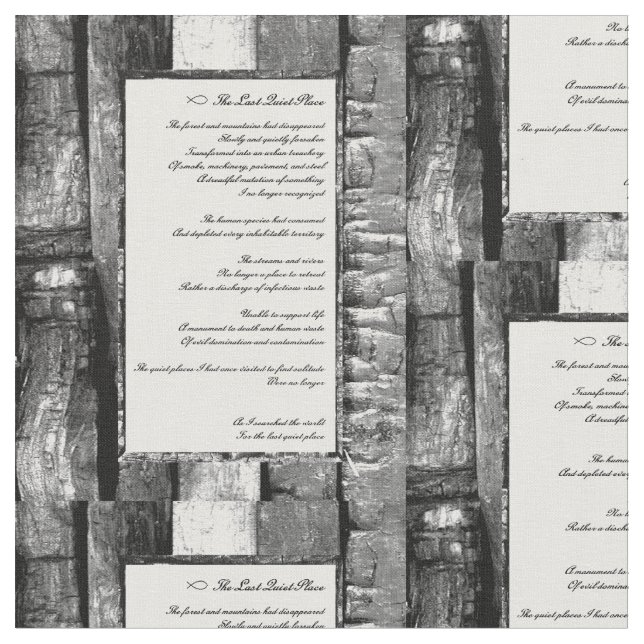 The Last Quiet Place
The forest and mountains had disappeared
Slowly and quietly forsaken
Transformed into an urban treachery
Of smoke, machinery, pavement, and steel
A dreadful mutation of something
I no longer recognized
The human species had consumed
And depleted every inhabitable territory
The streams and rivers
No longer a place to retreat
Rather a discharge of infectious waste
Unable to support life
A monument to death and human waste
Of evil domination and contamination
The quiet places I had once visited to find solitude
Were no longer
As I searched the world
For the last quiet place
The Last Quiet Place
The forest and mountains had disappeared
Slowly and quietly forsaken
No lo
Rather a discha
A monument to
Of evil domina
The quiet places I had once
The
The forest and mou
Slowly
Transformed
Of smoke, machiner
A dreadful
The huma
And depleted every
No lo
Rather a discha
A monument to
Of evil domina
The quiet places I had once